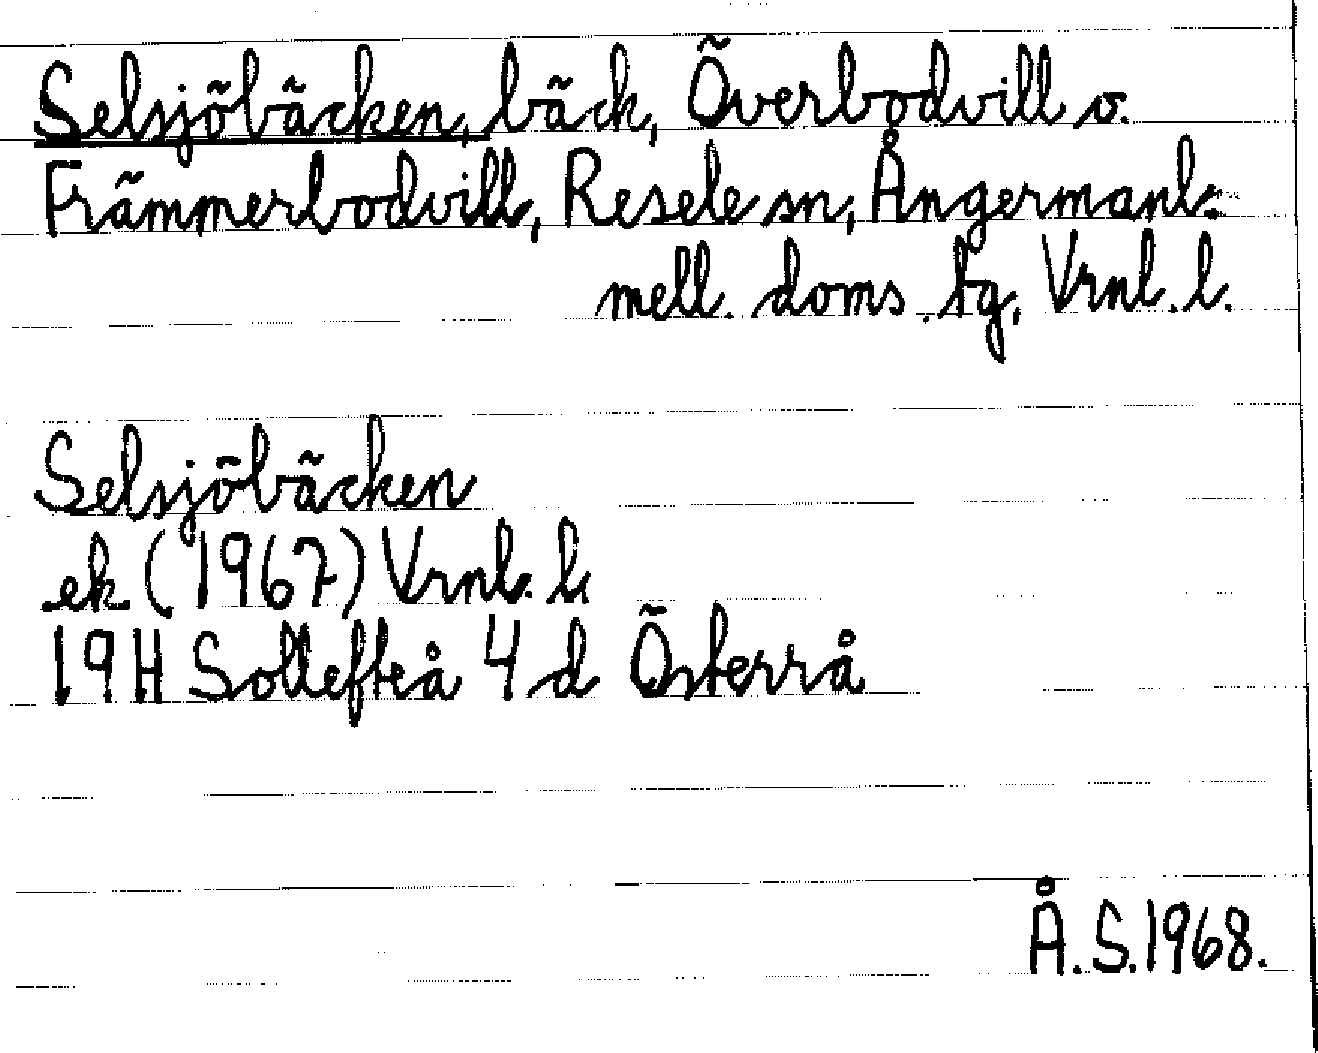 Selsjöbäcken, bäck, Överbodvill o.
Främmerbodvill, Resele sn, Ångermanl:
mell. doms. tg, Vrnl. l.
Selsjöbäcken
ek (1967) Vrnl. l.
19H Sollefteå 4d Österrå
Å.S.1968.